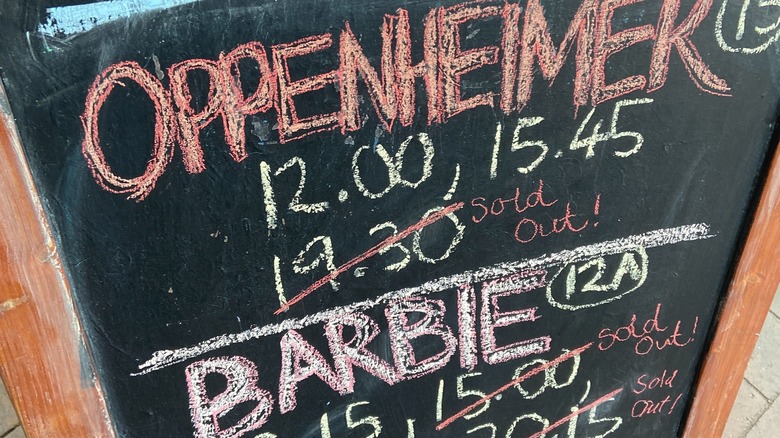 OPPENHEIMER 15
12.00, 15.45
19.30 Sold Out!
BARBIE 12A
15.00 Sold Out!
15 Sold Out!